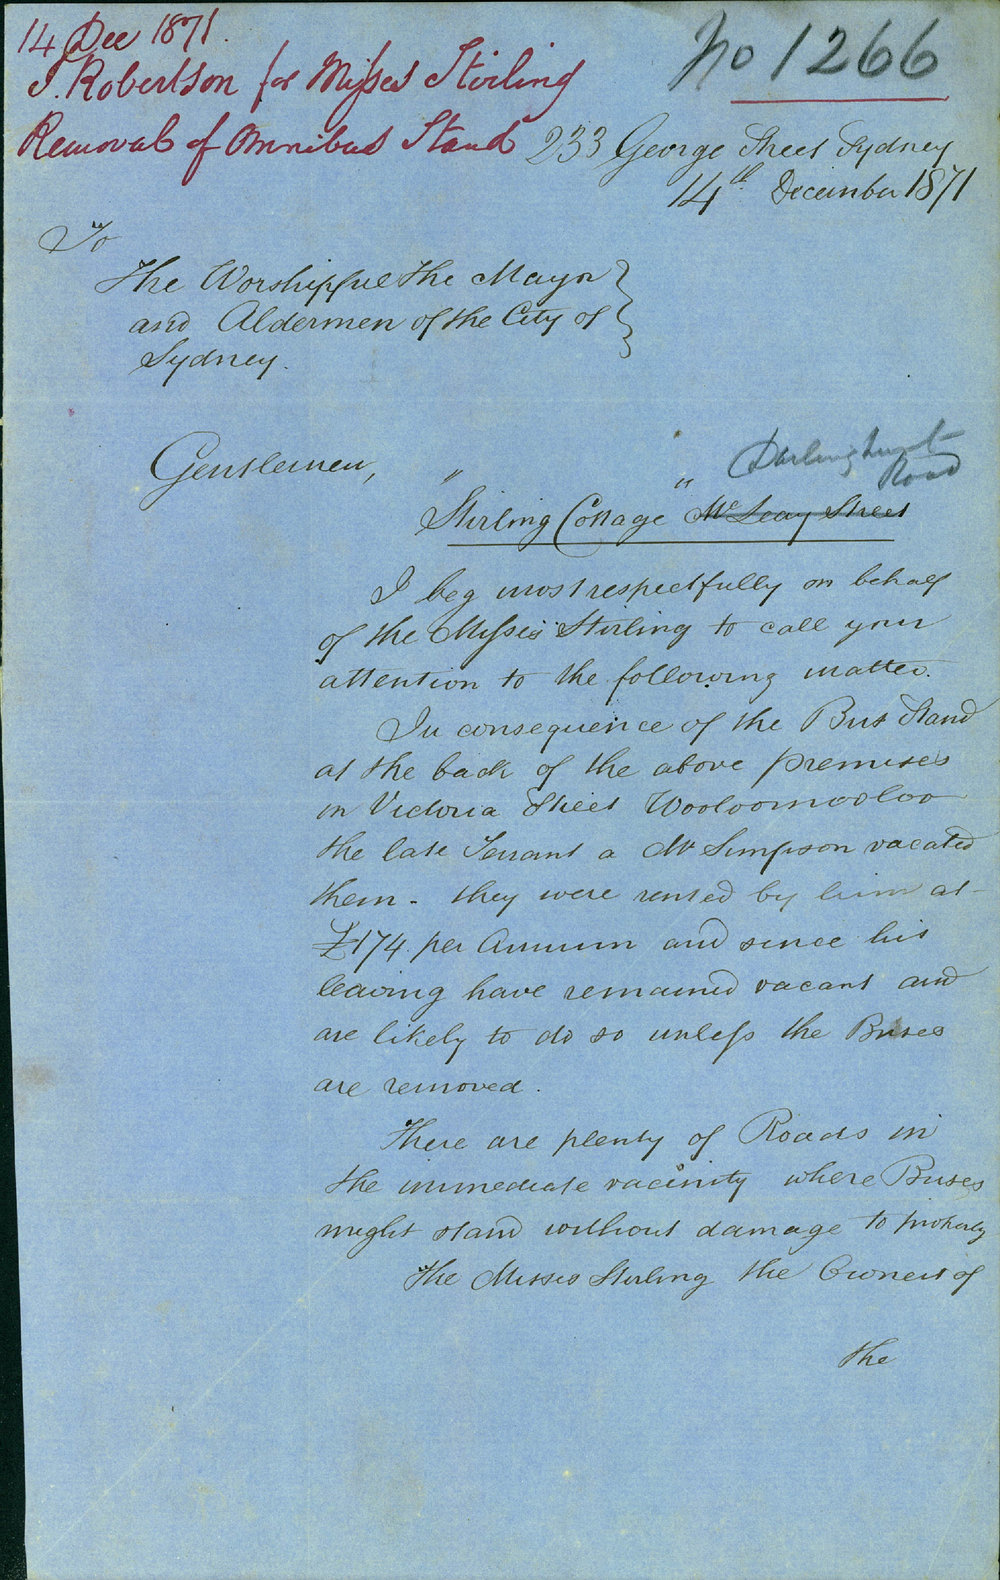 14 Dec 1871.
J. Robertson for Misses Stirling
Removal of Omnibus Stand
No 1266
233 George Street Sydney
14th December 1871
To
The Worshipful the Mayor
and Aldermen of the City of
Sydney.
Gentlemen,
Darlinghurst
Road
"Stirling Cottage" McLeay Street
I beg most respectfully on behalf
of the Misses Stirling to call your
attention to the following matter.
In consequence of the Bus Stand
at the back of the above premises
in Victoria Street Wooloomooloo
the late Tenant a Mr Simpson vacated
them - they were rented by him at
£174 per Annum and since his
leaving have remained vacant and
are likely to do so unless the Buses
are removed.
There are plenty of Roads in
the immediate vacinity where Buses
might stand without damage to property
The Misses Stirling the Owners of
the